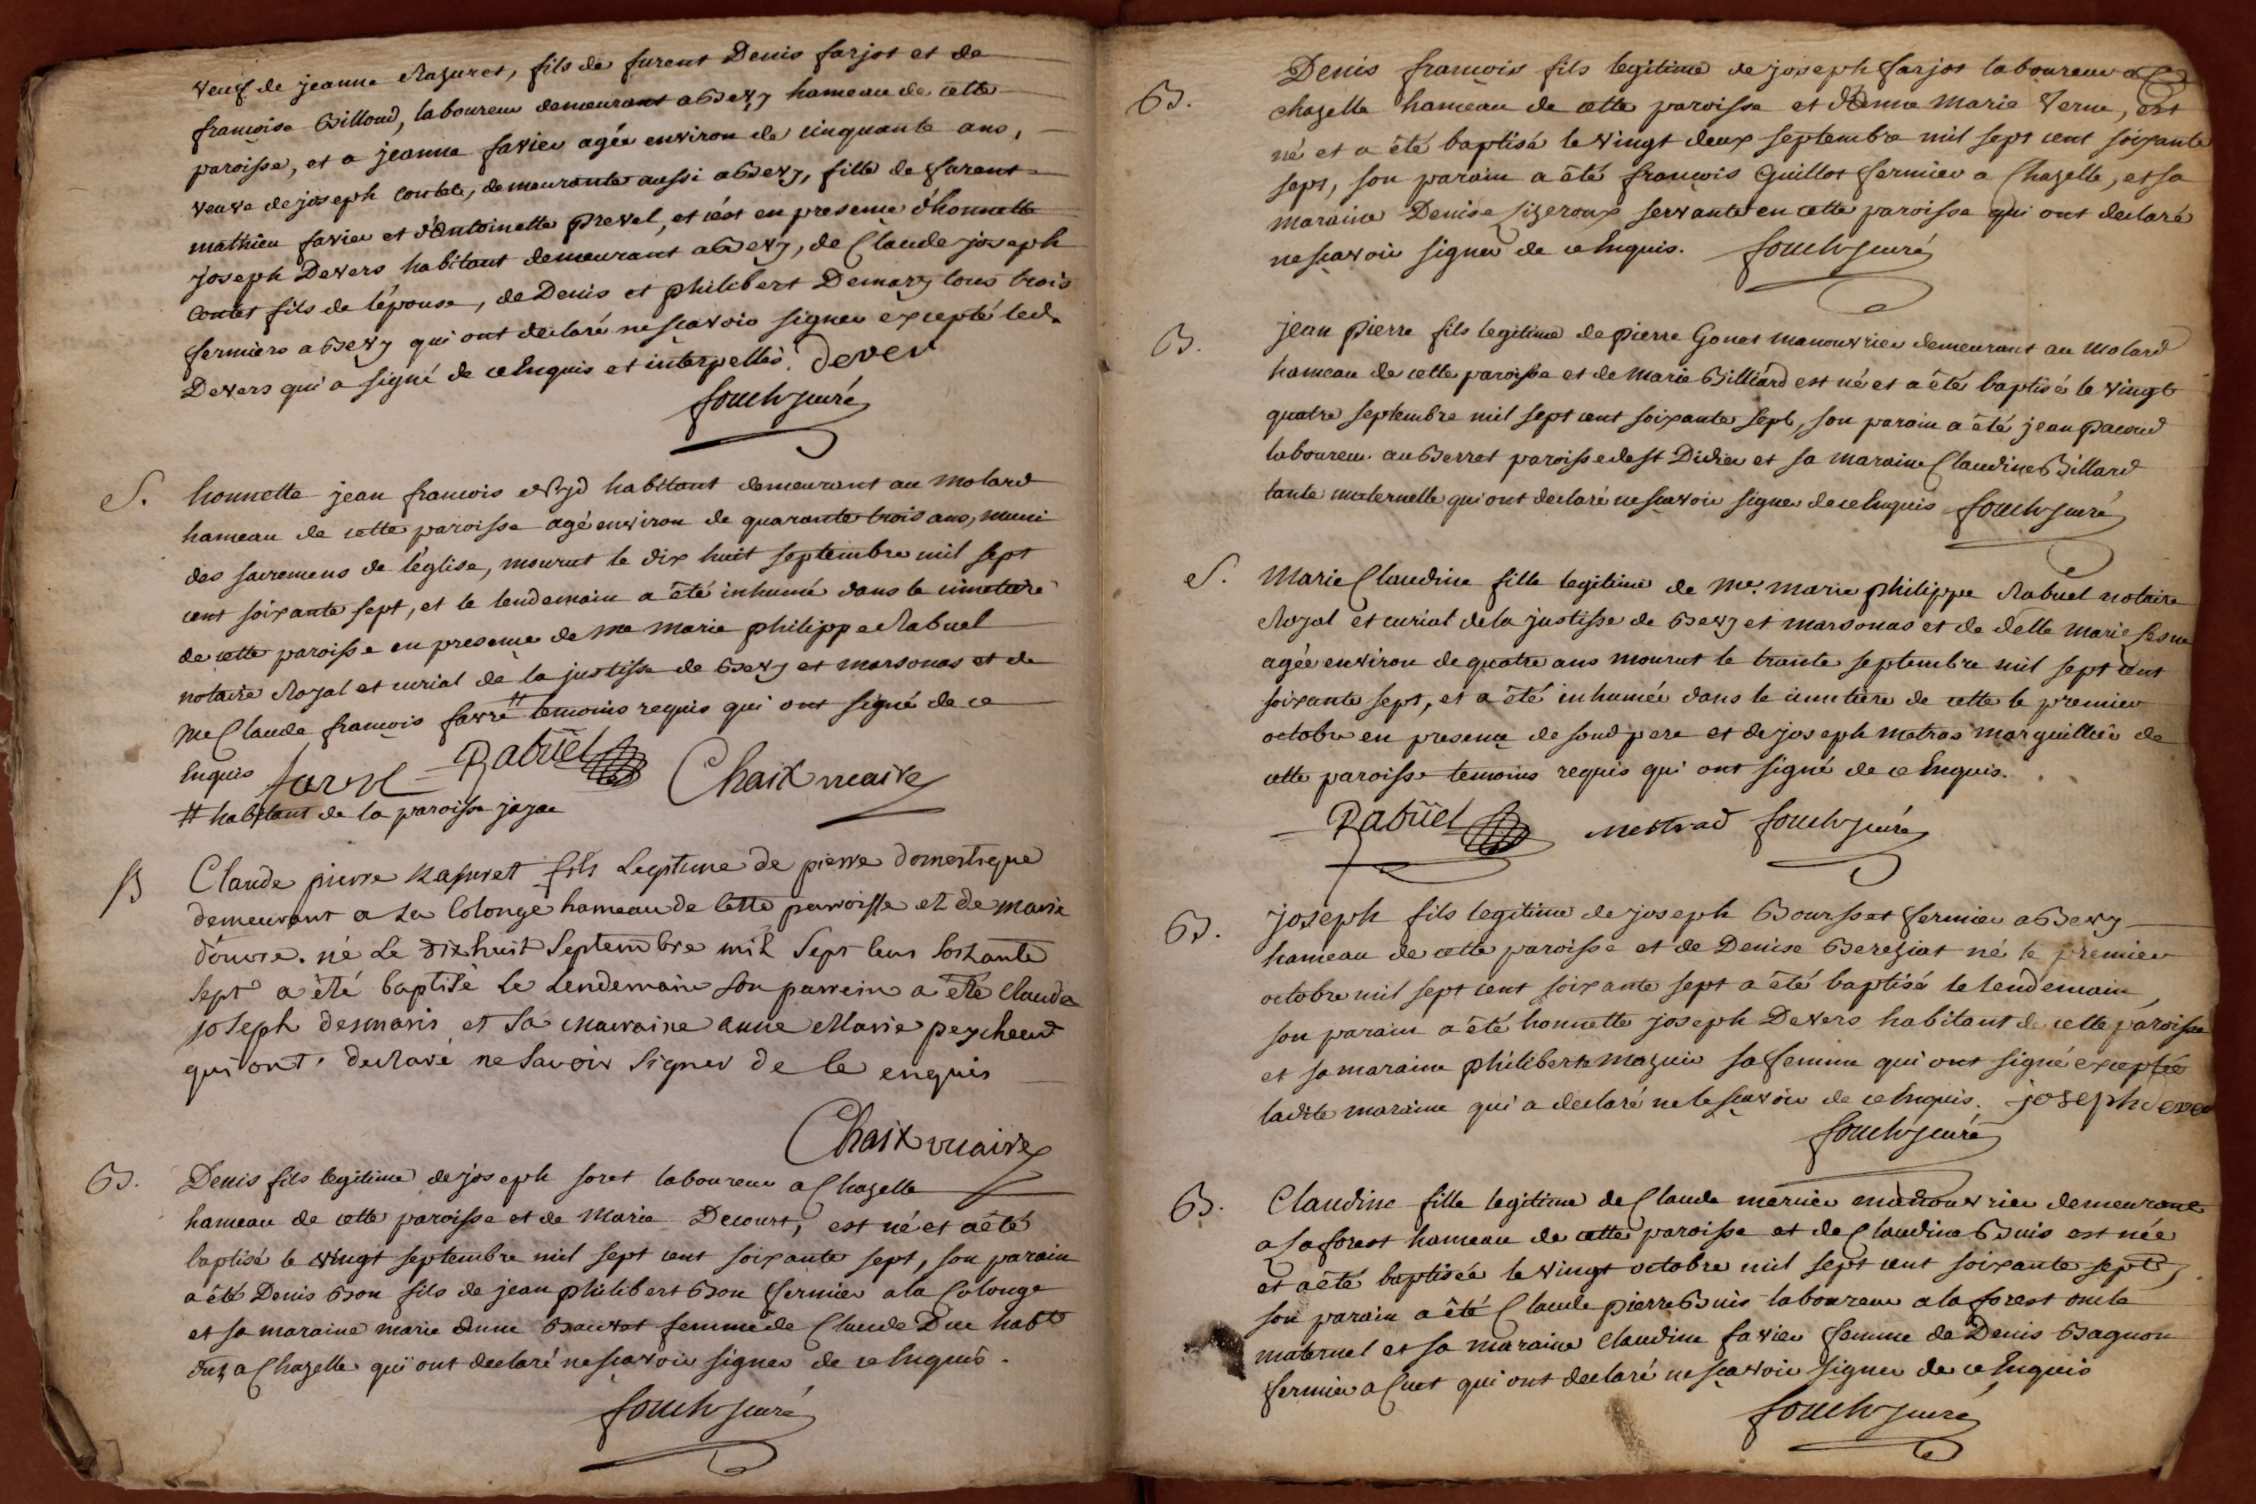 veuf de jeanne Razuret, fils de furent Denis farjot et de
francoise Billoud, laboureur demeurant a Bevy hameau de cette
paroisse, et a jeanne favier agée environ de cinquante ans,
veuve de joseph Contet, demeurante aussi a Bevy, fille de furent
mathieu favier et d'Antoinette Prevel, et c'est en presence d'honnette
joseph Devers habitant demeurant a Bevy, de Claude joseph
Contet fils de l'épouse, de Denis et philibert Demary tous trois
fermiers a Bevy qui ont declaré ne scavoir signer excepté led.
Devers qui a signé de ce Enquis et interpellés. Dever
fouch curé
S. honnette jean francois habitant demeurant au Molard
hameau de cette paroisse agé environ de quarante trois ans, muni
des sacremens de l'église, mourut le dix huit septembre mil sept
cent soixante sept, et le lendemain a été inhumé dans le cimetiere
de cette paroisse en presence de Me Marie philippe Rabuel
notaire Royal et curial de la justisse de Bevy et marsonas et de
Me Claude francois favre # temoins requis qui ont signé de ce
Enquis favre Rabüel Chaix vicaire
# habitant de la paroisse jayac
B Claude pierre Rasuret fils Legitime de pierre domestique
demeurant a La Colonge hameau de Cette parroisse et de marie
douvre. né Le dix huit Septembre mil Sept Cens Soixante
Sept a été baptisé Le Lendemain Son parrein a été Claude
joseph desmaris et Sa Marraine anne Marie peycheud
qui ont declaré ne Savoir Signer de Ce enquis
Chaix vicaire
B. Denis fils legitime de joseph soret laboureur a Chazelle
hameau de cette paroisse et de Marie Decourt, est né et a été
baptisé le vingt septembre mil sept cent soixante sept, son parain
a été Denis Bon fils de jean philibert Bon fermier a la Colonge
et sa maraine marie anne Bauvot femme de Claude Duc habt
a Chazelle qui ont declaré ne scavoir signer de ce Enquis.
fouch curé
B. Denis francois fils legitime de joseph farjot laboureur a
chazelle hameau de cette paroisse et d'Anne Marie Verne, est
né et a été baptisé le vingt deux septembre mil sept cent soixante
sept, son parain a été francois Guillot fermier a Chazelle, et sa
maraine Denise Lizeroux servante en cette paroisse qui ont declaré
ne scavoir signer de ce Enquis. fouch curé
B. jean Pierre fils legitime de Pierre Gonet manouvrier demeurant au Molard
hameau de cette paroisse et de Marie Billiard est né et a été baptisé le vingt
quatre septembre mil sept cent soixante sept, son parain a été jean Pacoud
laboureur au Berret paroisse de st Didier et sa maraine Claudine Billard
tante maternelle qui ont declaré ne scavoir signer de ce Enquis fouch curé
S. Marie Claudine fille legitime de Me. Marie philippe Rabuel notaire
Royal et curial de la justisse de Bevy et marsonas et de delle Marie
agée environ de quatre ans mourut le trente septembre mil sept cent
soixante sept, et a été inhumée dans le cimetiere de cette le premier
octobre en presence de sond pere et de joseph metras marguillier de
cette paroisse temoins requis qui ont signé de ce Enquis.
Rabüel mestrad fouch curé
B. joseph fils legitime de joseph Boursset fermier a Bevy
hameau de cette paroisse et de Denise Bereziat né le premier
octobre mil sept cent soixante sept a été baptisé le lendemain,
son parain a été honnette joseph Devers habitant de cette paroisse
et sa maraine philiberte Mazuir sa femme qui ont signé exceptée
ladite maraine qui a declaré ne le scavoir de ce Enquis. joseph Dever
fouch curé
B. Claudine fille legitime de Claude mercier manouvrier demeurant
a la forest hameau de cette paroisse et de Claudine Buis est née
et a été baptisée le vingt octobre mil sept cent soixante sept,
son parain a été Claude pierre Buis laboureur a la forest oncle
maternel et sa maraine Claudine favier femme de Denis Bagnon
fermier a Cuet qui ont declaré ne scavoir signer de ce Enquis
fouch curé